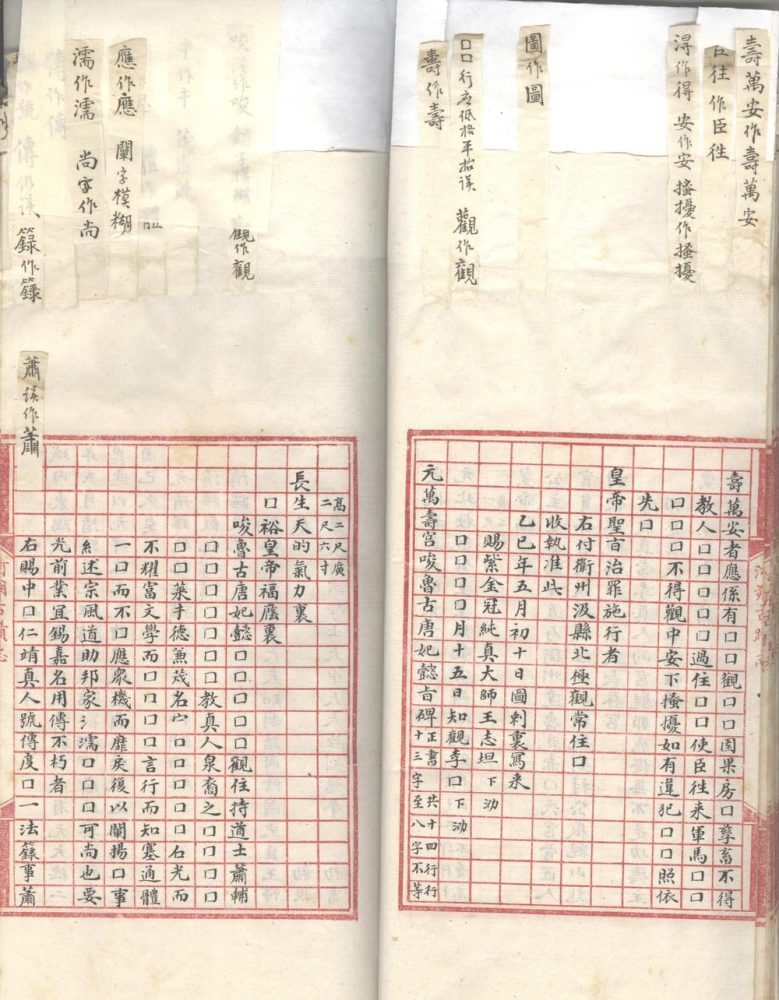 壽萬安作壽萬安
臣往作臣徃
淂作得 安作安 搔擾作搔擾
圖作圖
口口行应低格平抬误 觀作觀
壽作壽
壽萬安者應係有口口觀口口園果房口孳畜不得
教人口口口口口過住口口使臣徃来軍馬口口
口口口不得觀中安下搔擾如有違犯口口照依
先口
皇帝聖旨治罪施行者
右付衛州汲縣北極觀常住口
收執准此
乙巳年五月初十日圖剌裏寫来
賜紫金冠純真大師王志坦下泐
口口口口月十五日知觀李口下泐
元萬壽宮唆魯古唐妃懿旨碑正書共十四行行十三字至八字不等
高二尺廣二尺六寸
長生天的氣力裏
口裕皇帝福廕裏
唆魯古唐妃懿口口口口口觀住持道士蕭輔
口口口口口口口教真人泉裔之口口口口
口口萊牛德兼茂名宀口口口口口石光而
不耀富文學而口口口言行而知塞通體
一口而不口應衆機而靡戾復以闡揚口事
糹述宗風道助邦家氵濡口口口可尚也要
光前業宜錫嘉名用傳不朽者
右賜中口仁靖真人號傳度口一法籙事蕭
觀作觀
應作應 闡字模糊
濡作濡 尚字作尚
籙作籙
蕭误作蕭